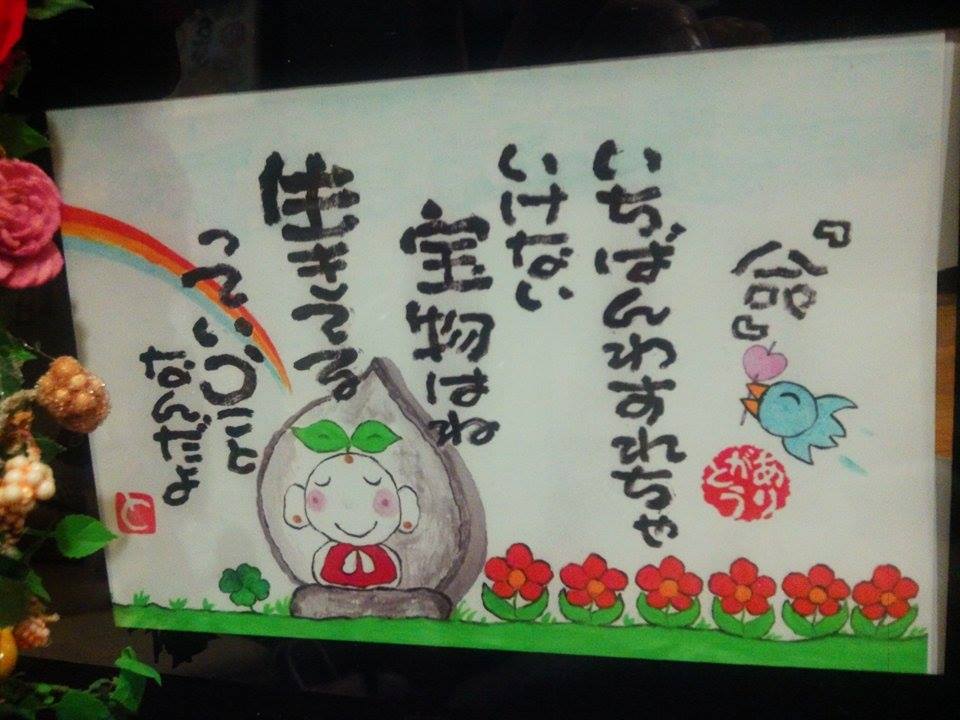 『命』
ありがとう
いちばんわすれちゃ
いけない
宝物はね
生きてる
っていうこと
なんだよ